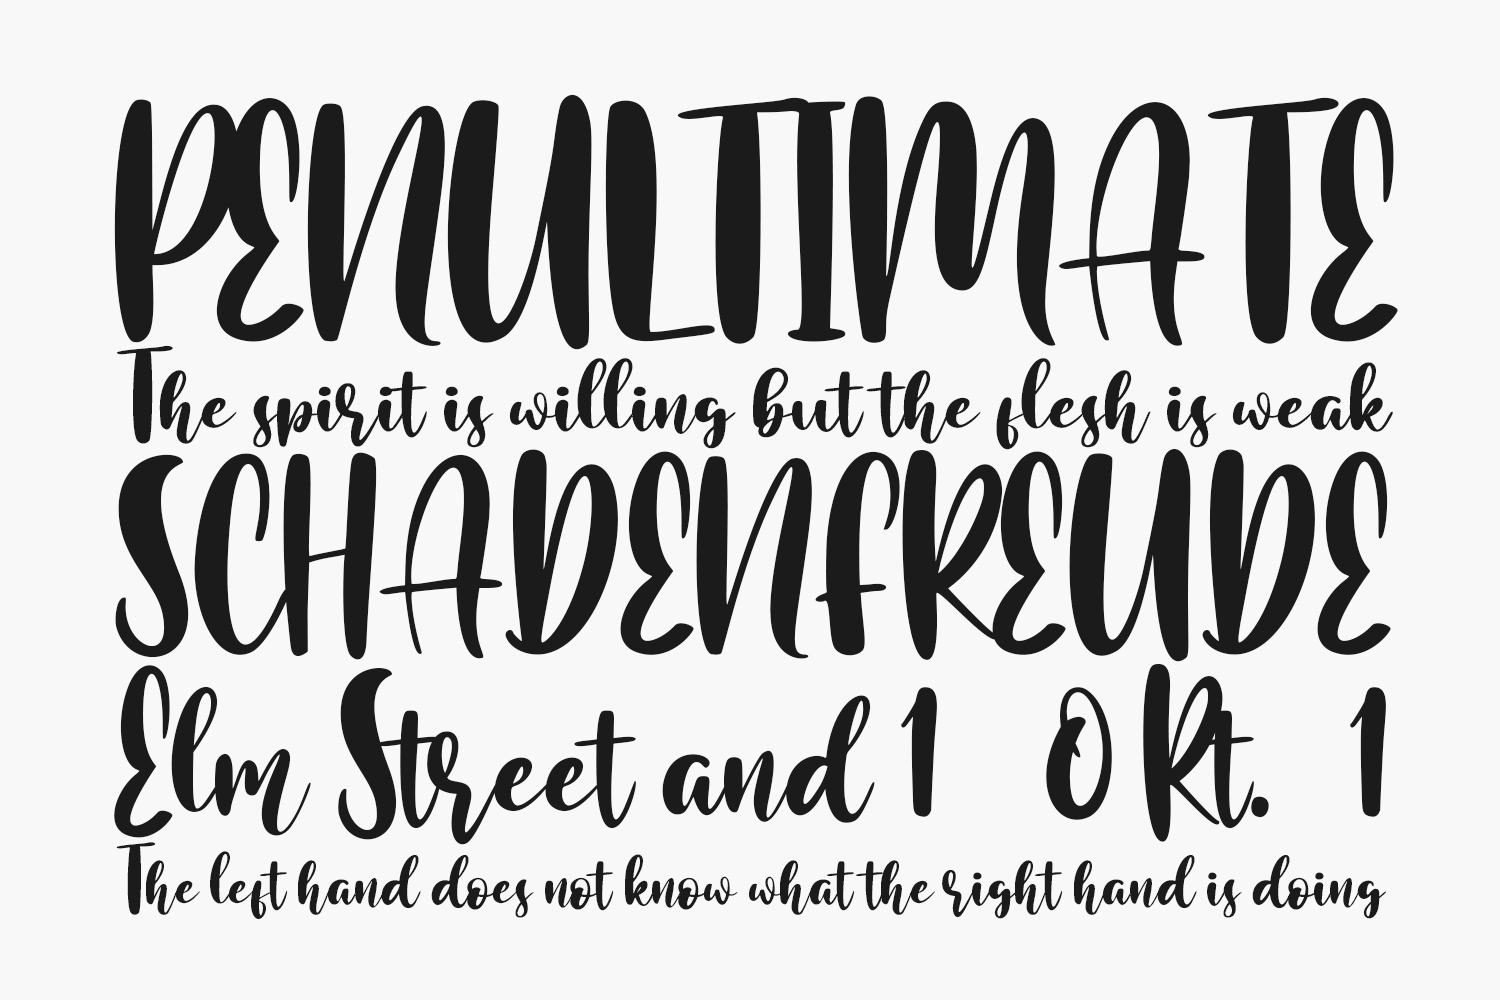 PENULTIMATE
The spirit is willing but the flesh is weak
SCHADENFREUDE
Elm Street and 1 0 Rt. 1
The left hand does not know what the right hand is doing